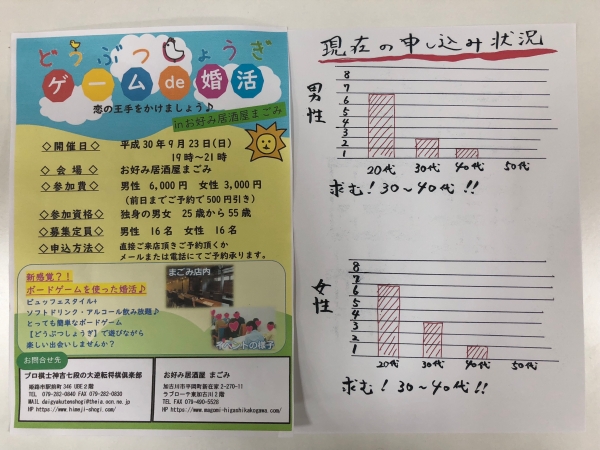 どうぶつしょうぎ
ゲームde婚活
恋の王手をかけましょう♪
inお好み居酒屋まごみ
◇開催日◇ 平成30年9月23日(日)
19時〜21時
◇会 場◇ お好み居酒屋まごみ
◇参加費◇ 男性 6,000円 女性 3,000円
(前日までご予約で500円引き)
◇参加資格◇ 独身の男女 25歳から55歳
◇募集定員◇ 男性 16名 女性 16名
◇申込方法◇ 直接ご来店頂きご予約頂くか
メールまたは電話にてご予約承ります。
新感覚?!
ボードゲームを使った婚活♪
ビュッフェスタイル+
ソフトドリンク・アルコール飲み放題♪
とっても簡単なボードゲーム
【どうぶつしょうぎ】で遊びながら
楽しい出会いしませんか?
まごみ店内
イベントの様子
お問合せ先
プロ棋士神吉七段の大逆転将棋倶楽部
姫路市駅前町346 UBE2階
TEL 079-282-0840 FAX 079-282-0830
MAIL daigyakutenshogi@theia.ocn.ne.jp
HP https://www.himeji-shogi.com/
お好み居酒屋 まごみ
加古川市平岡町新在家2-270-11
ラブローテ東加古川2階
TEL FAX 079-490-5528
HP https://www.magomi-higashikakogawa.com/
現在の申し込み状況
男性
8
7
6
5
4
3
2
1
20代 30代 40代 50代
求む!30〜40代!!
女性
8
7
6
5
4
3
2
1
20代 30代 40代 50代
求む!30〜40代!!